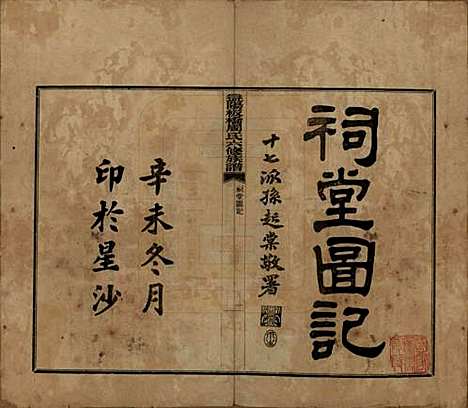 祠堂圖記
十七派孫起棠敬署
陽板橋周氏六修族譜
祠堂圖記
辛未冬月
印於星沙